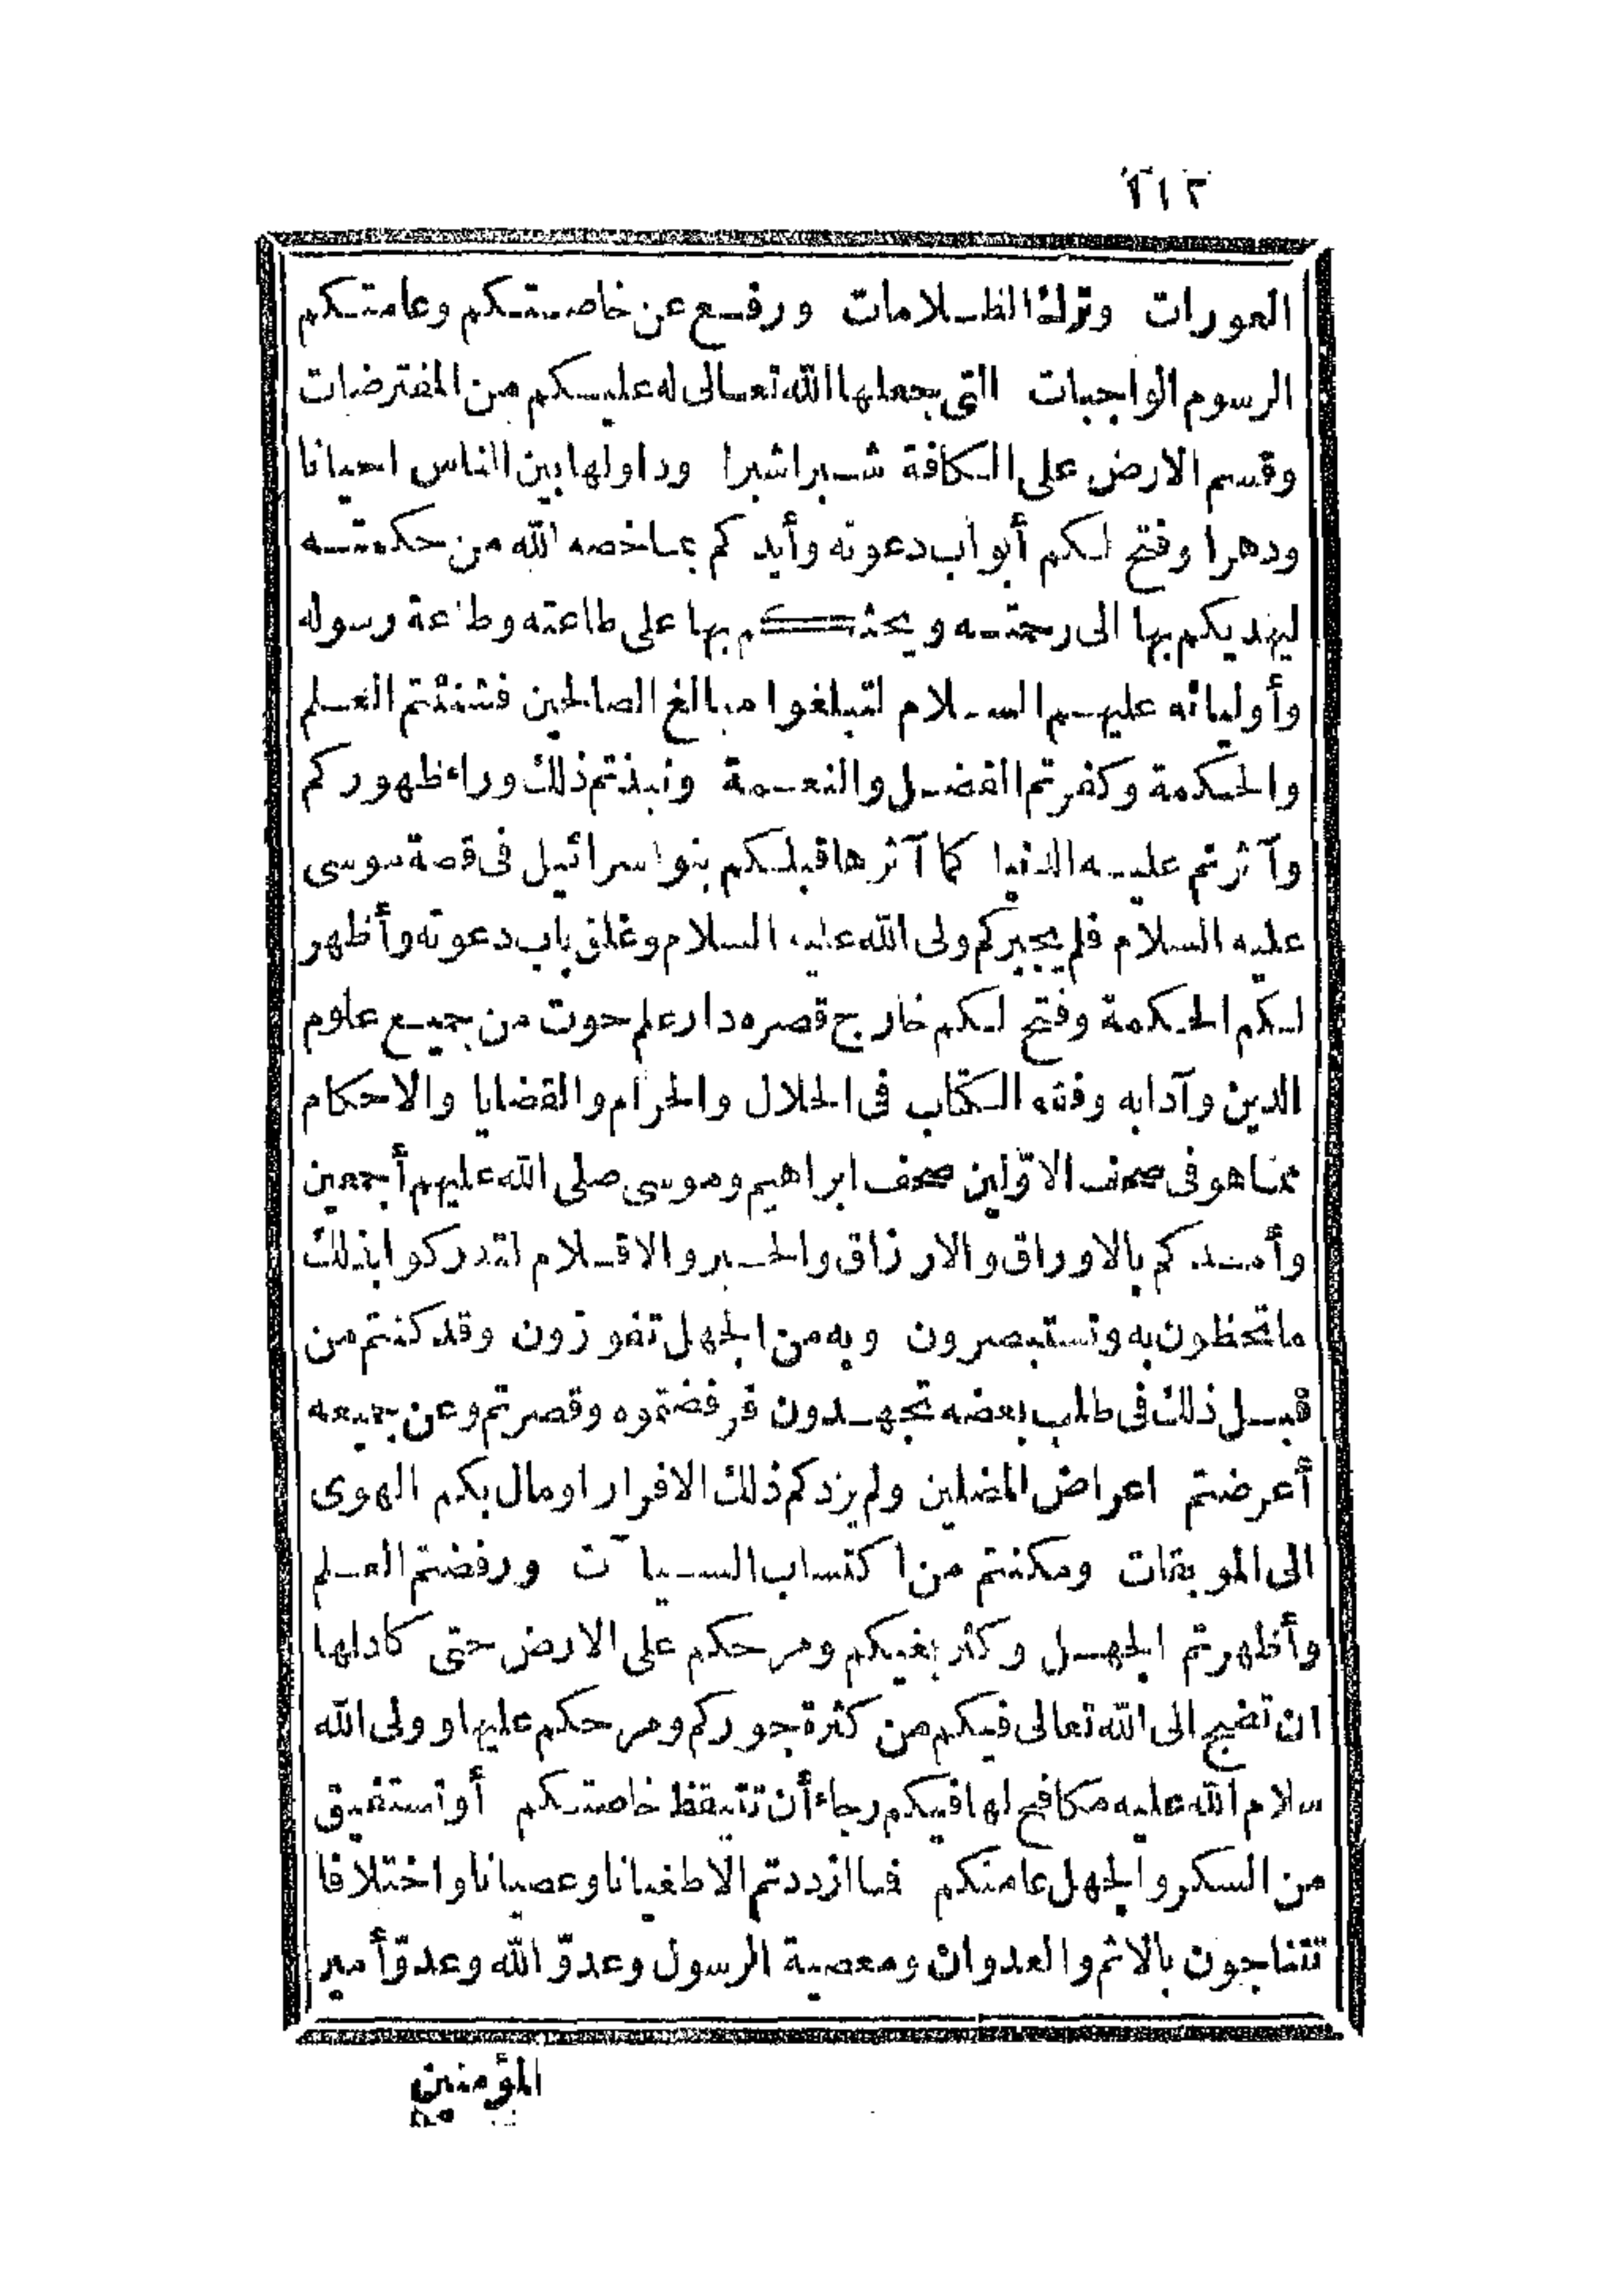 ٢١٢
العورات وترك الظلامات ورفع عن خاصتكم وعامتكم
الرسوم الواجبات التي يجعلها الله تعالى له عليكم من المفترضات
وقسم الارض على الكافة شبرا شبرا وداولها بين الناس احيانا
ودهرا وفتح لكم أبواب دعوته وأيدكم بما خصه الله من حكمته
ليهديكم بها الى رحمته ويحثكم بها على طاعته وطاعة رسوله
وأوليائه عليهم السلام لتبلغوا مبالغ الصالحين فشنئتم العلم
والحكمة وكفرتم الفضل والنعمة ونبذتم ذلك وراء ظهوركم
وآثرتم عليه الدنيا كما آثرها قبلكم بنو اسرائيل فى قصة موسى
عليه السلام فلم يجبركم ولى الله عليه السلام وغلق باب دعوته وأظهر
لكم الحكمة وفتح لكم خارج قصره دار علم حوت من جميع علوم
الدين وآدابه وفقه الكتاب فى الحلال والحرام والقضايا والاحكام
مما هو فى صحف الاوّلين صحف ابراهيم وموسى صلى الله عليهم أجمعين
وأمدكم بالاوراق والارزاق والحبر والاقلام لتدركوا بذلك
ما تحظون به وتستبصرون وبه من الجهل تفوزون وقد كنتم من
قبل ذلك فى طلب بعضه تجهدون فرفضتموه وقصرتم وعن جميعه
أعرضتم اعراض المضلين ولم يزدكم ذلك الا فرارا ومال بكم الهوى
الى الموبقات ومكنتم من اكتساب السيآت ورفضتم العلم
وأظهرتم الجهل وكثر بغيكم ومرحكم على الارض حتى كاد لها
ان تضج الى الله تعالى فيكم من كثرة جوركم ومرحكم عليها وولى الله
سلام الله عليه مكافح لها فيكم رجاء أن تتيقظ خاصتكم أو تستفيق
من السكر والجهل عامتكم فما ازددتم الا طغيانا وعصيانا واختلافا
تتناجون بالاثم والعدوان ومعصية الرسول وعدوّ الله وعدوّ أمير
المؤمنين